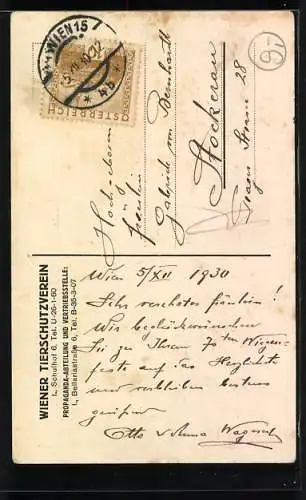 WIEN 15
ÖSTERREICH
Hochwohlgeboren
Fräulein
Gabriele von Bernhardt
Stockerau
28
WIENER TIERSCHUTZVEREIN
I., Schulhof 6, Tel. U-26-1-60
PROPAGANDA-ABTEILUNG UND VERTRIEBSSTELLE:
I., Bellariastraße 6, Tel. B-35-3-07
Wien 5/XII 1930
Sehr verehrtes Fräulein!
Wir beglückwünschen
Sie zu Ihrem 70ten Wiegen-
feste auf das Herzlichste
und verbleiben bestens
grüßend
Otto u Anna